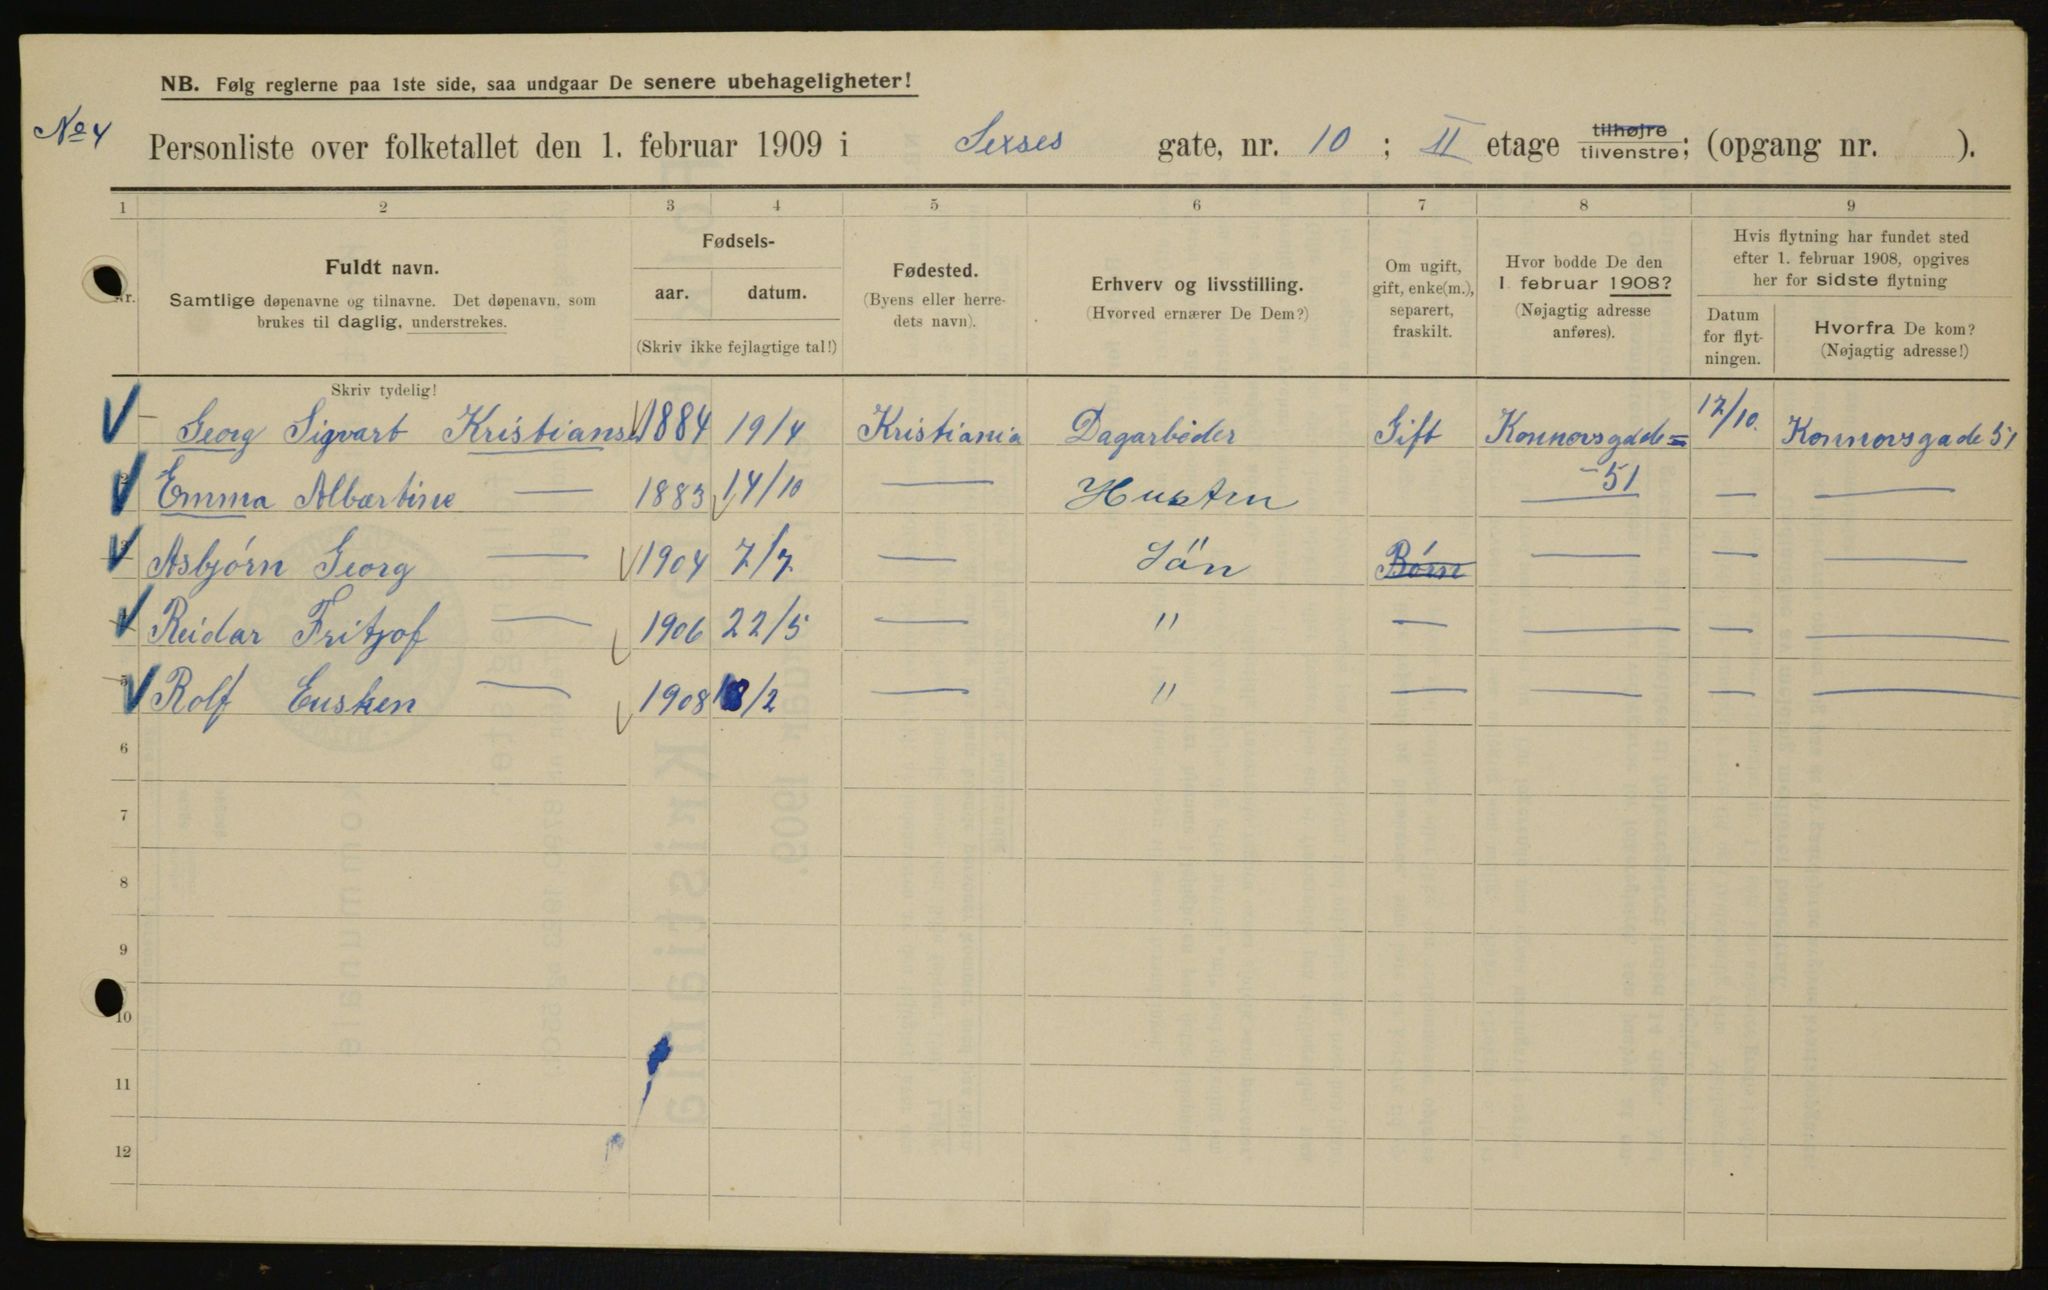 NB. Følg reglerne paa 1ste side, saa undgaar De senere ubehageligheter!
No 4
Personliste over folketallet den 1. februar 1909 i Sexses gate, nr. 10 ; II etage tilhøjre tilvenstre; (opgang nr. ).
1 2 3 4 5 6 7 8 9
Nr.
Fuldt navn.
Samtlige døpenavne og tilnavne. Det døpenavn, som
brukes til daglig, understrekes.
Skriv tydelig!
Fødsels-
aar. datum.
(Skriv ikke fejlagtige tal!)
Fødested.
(Byens eller herre-
dets navn).
Erhverv og livsstilling.
(Hvorved ernærer De Dem?)
Om ugift,
gift, enke(m.),
separert,
fraskilt.
Hvor bodde De den
1. februar 1908?
(Nøjagtig adresse
anføres).
Hvis flytning har fundet sted
efter 1. februar 1908, opgives
her for sidste flytning
Datum
for flyt-
ningen.
Hvorfra De kom?
(Nøjagtig adresse!)
Georg Sigvart Kristiansen 1884 19/4 Kristiania Dagarbeder Gift Konnovsgade= 17/10. Konnovsgade 51
2 Emma Albertine — 1883 14/10 — Hustru — 51 — —
3 Asbjørn Georg — 1904 7/7 — Sön Børn — — —
4 Reidar Fritjof — 1906 22/5 — " — — — —
5 Rolf Eusken — 1908 18/2 — " — — — —
6
7
8
9
10
11
12